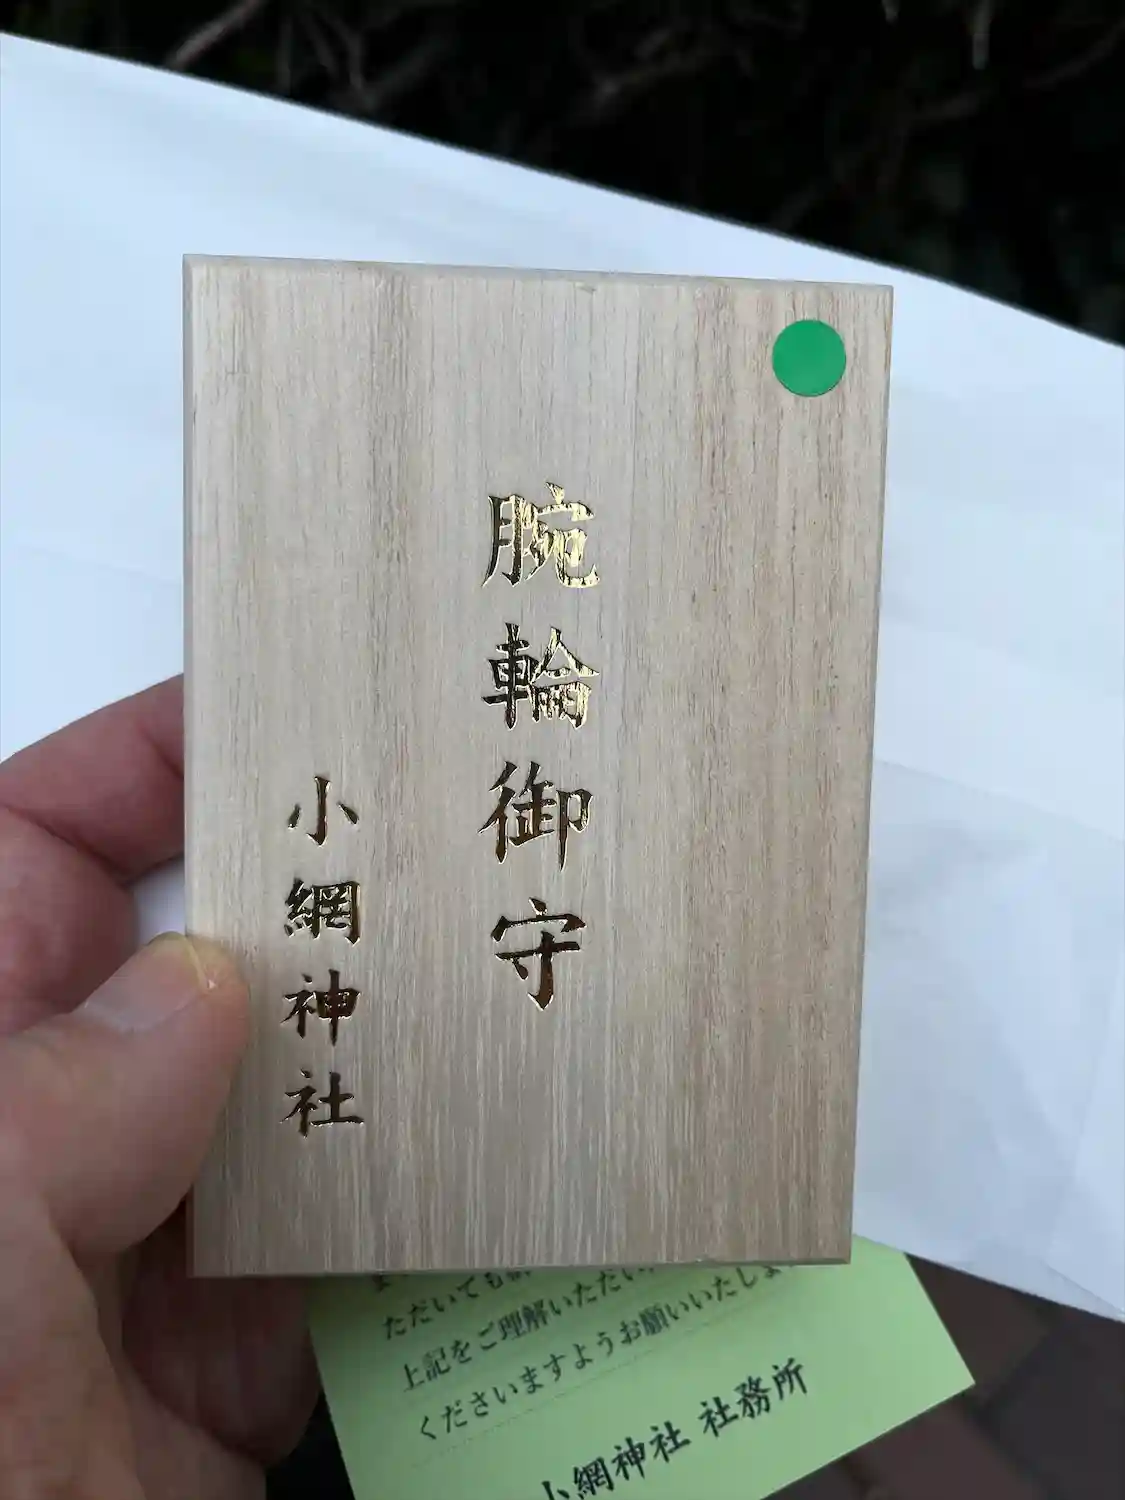 腕輪御守
小網神社
ただいても
上記をご理解いただい
くださいますようお願いいたしま
小網神社 社務所